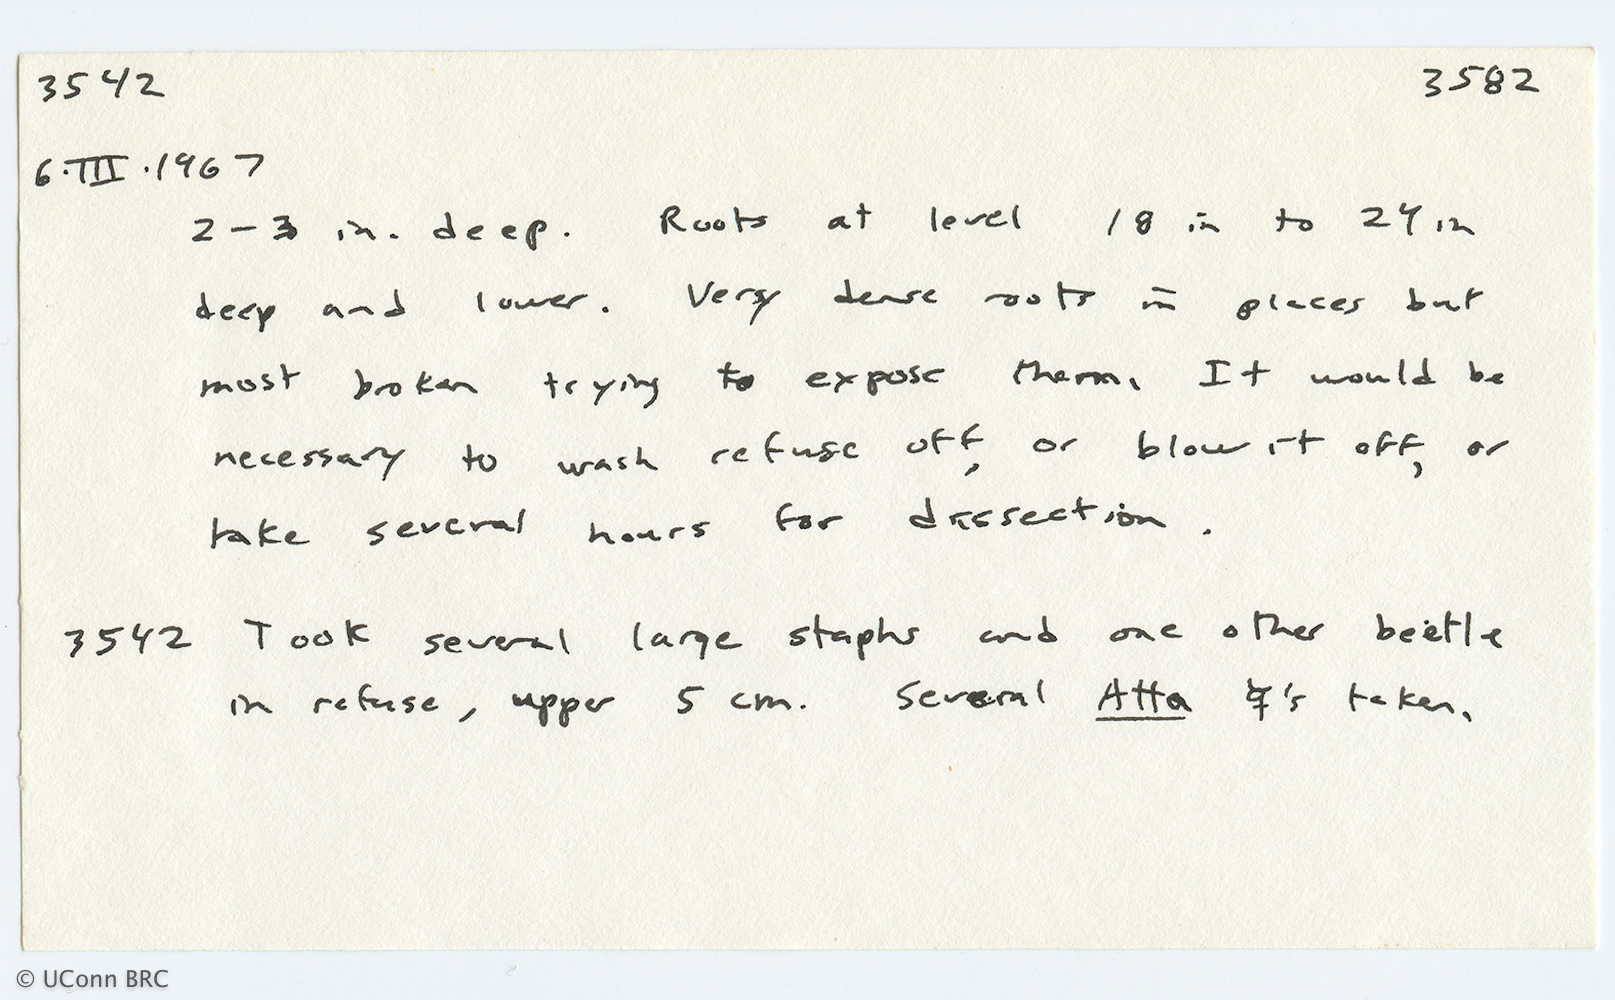 3542 3582
6·III·1967
2-3 in. deep. Roots at level 18 in to 24 in
deep and lower. Very dense roots in places but
most broken trying to expose them. It would be
necessary to wash refuse off, or blow it off, or
take several hours for dissection.
3542 Took several large staphs and one other beetle
in refuse, upper 5 cm. Several Atta ☿'s taken.
© UConn BRC